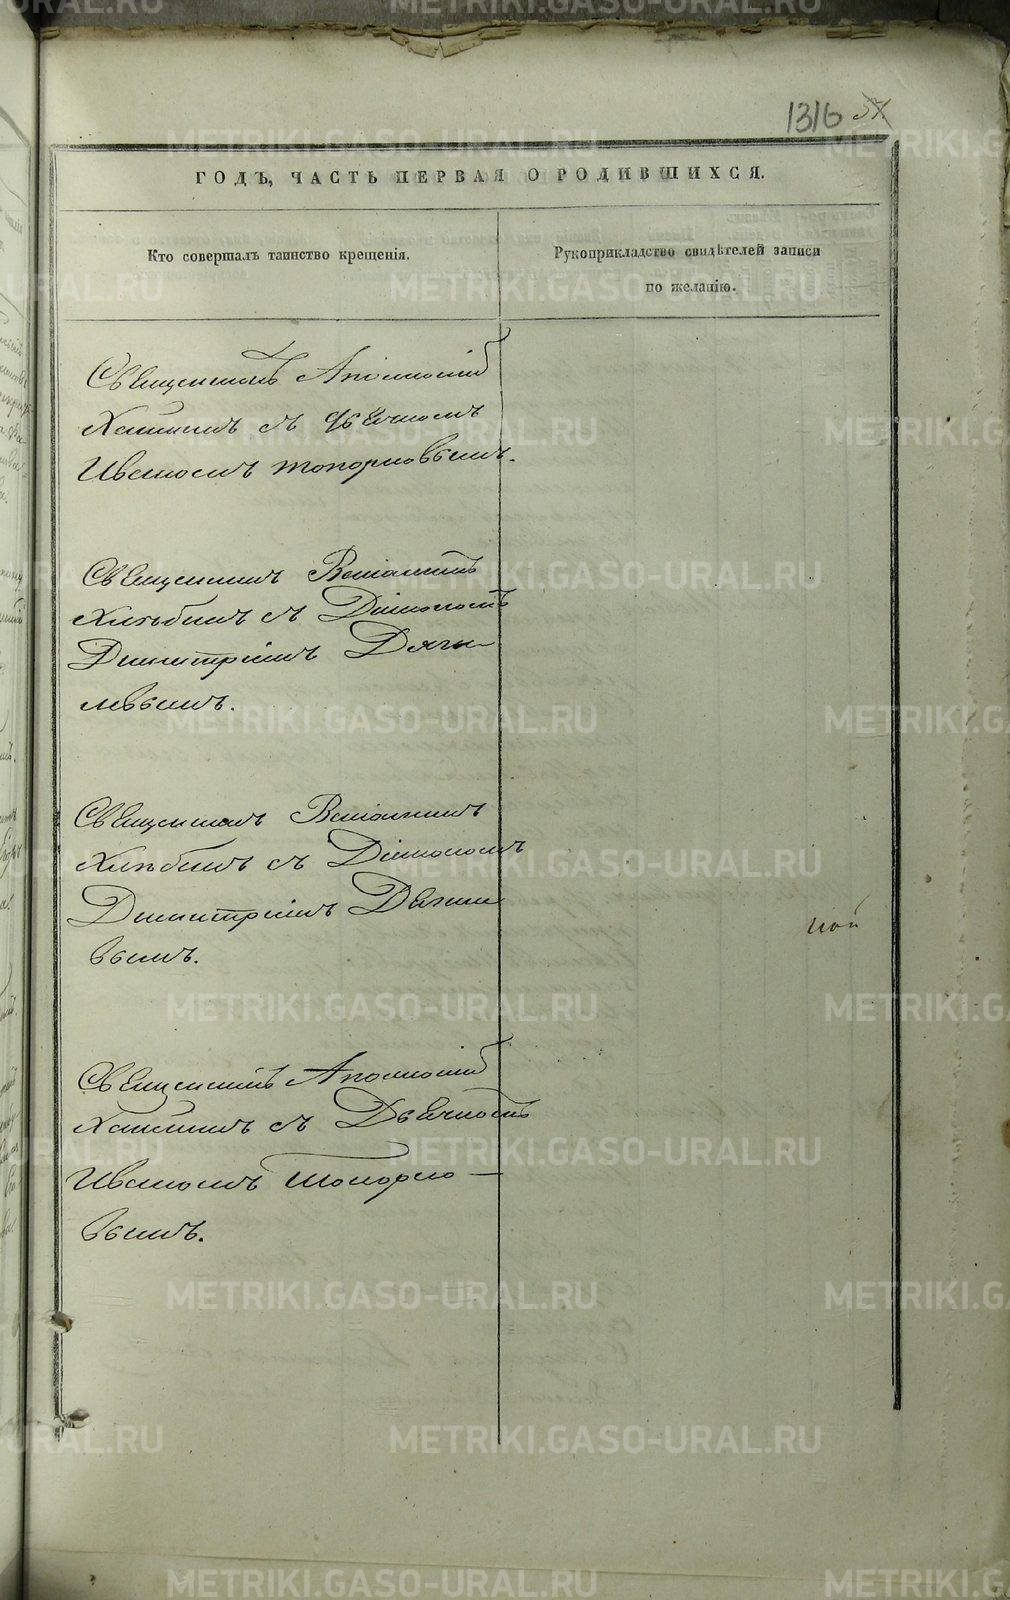 1316 57
ГОДЪ, ЧАСТЬ ПЕРВАЯ О РОДИВШИХСЯ.
Кто совершалъ таинство крещенія.
Рукоприкладство свидѣтелей записи
по желанію.
Священникъ Аполлоній
съ дьячкомъ
Иваномъ Топорковымъ.
Священникъ Веніаминъ
Хлѣбинъ съ Діакономъ
Димитріемъ Дяги-
левымъ.
Священникъ Веніаминъ
Хлѣбинъ съ Діакономъ
Димитріемъ
вымъ.
ной
Священникъ Аполлоній
съ Дьячкомъ
Иваномъ Топорко-
вымъ.
METRIKI.GASO-URAL.RU